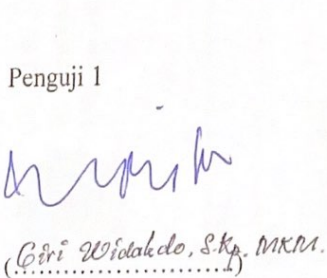 Penguji 1
(Giri Widakdo, S.Kp. MKM.)